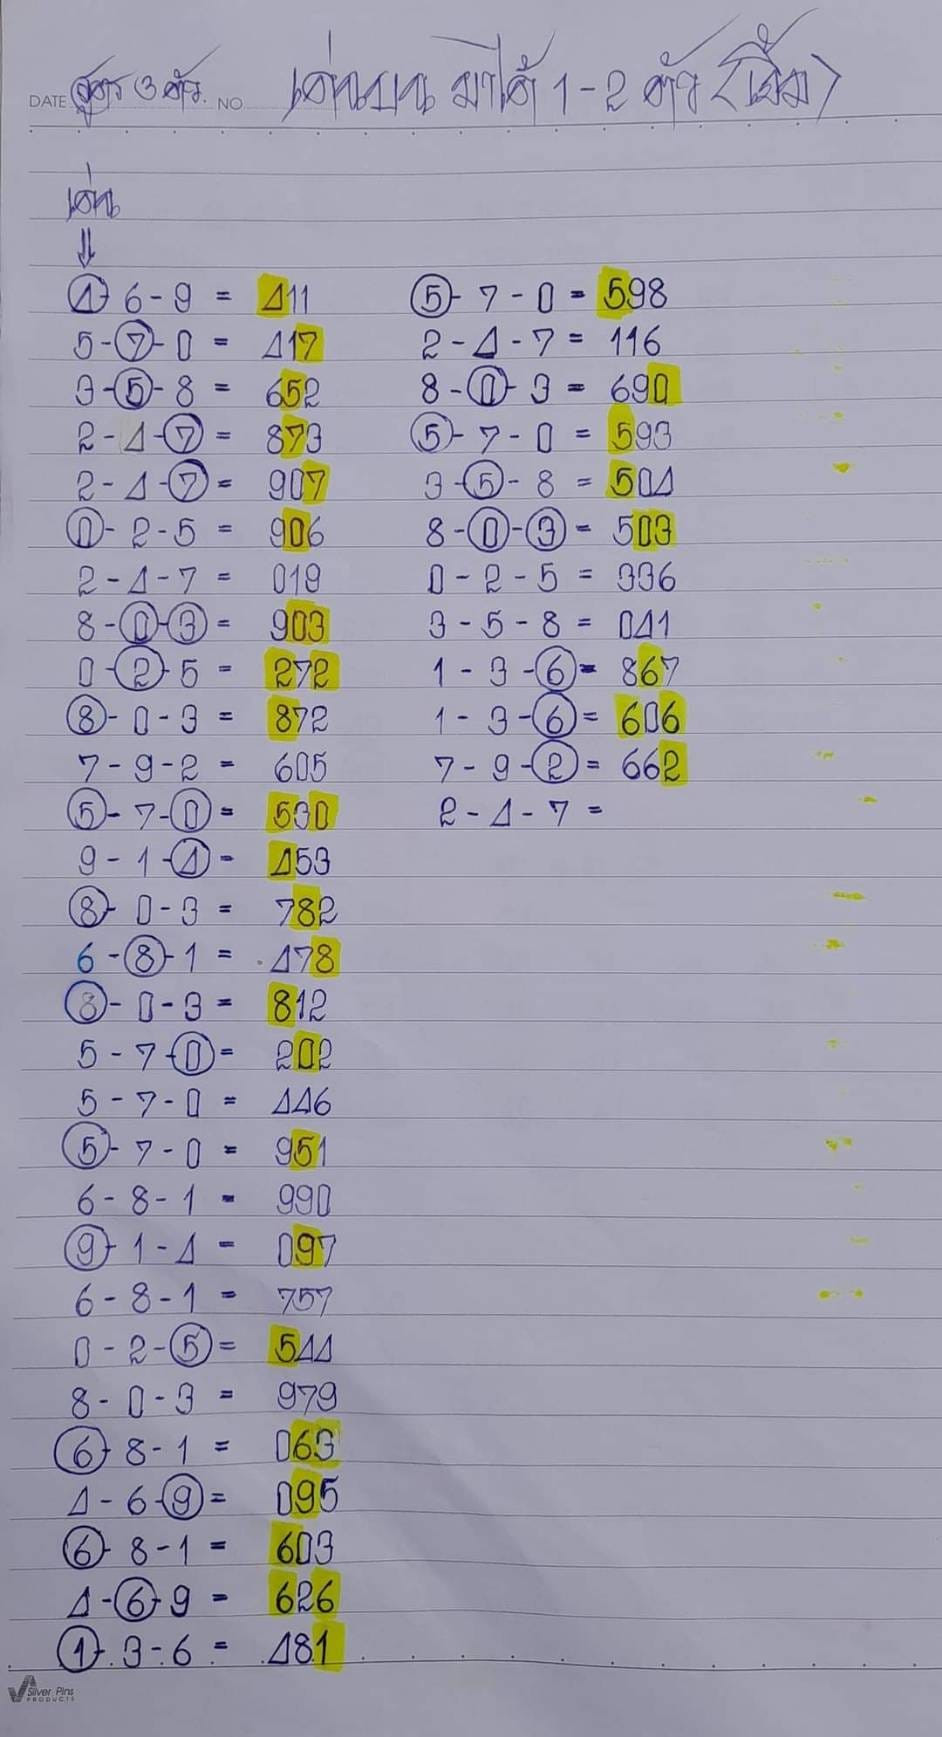 DATE สูตร 3 ตัว. NO เด่นบน มาได้ 1-2 ตัว (เจิม)
เด่น
⇓
4 - 6 - 9 = 411
5 - 7 - 0 = 417
3 - 5 - 8 = 652
2 - 4 - 7 = 873
2 - 4 - 7 = 907
0 - 2 - 5 = 906
2 - 4 - 7 = 019
8 - 0 - 3 = 903
0 - 2 - 5 = 272
8 - 0 - 3 = 872
7 - 9 - 2 = 605
5 - 7 - 0 = 530
9 - 1 - 4 = 453
8 - 0 - 3 = 782
6 - 8 - 1 = 478
8 - 0 - 3 = 812
5 - 7 - 0 = 202
5 - 7 - 0 = 446
5 - 7 - 0 = 951
6 - 8 - 1 = 990
9 - 1 - 4 = 097
6 - 8 - 1 = 757
0 - 2 - 5 = 544
8 - 0 - 3 = 979
6 - 8 - 1 = 063
4 - 6 - 9 = 095
6 - 8 - 1 = 603
4 - 6 - 9 = 626
1 - 3 - 6 = 481
5 - 7 - 0 = 598
2 - 4 - 7 = 116
8 - 0 - 3 = 690
5 - 7 - 0 = 593
3 - 5 - 8 = 504
8 - 0 - 3 = 503
0 - 2 - 5 = 336
3 - 5 - 8 = 041
1 - 3 - 6 = 867
1 - 3 - 6 = 606
7 - 9 - 2 = 662
2 - 4 - 7 =
Silver Pins
PRODUCTS